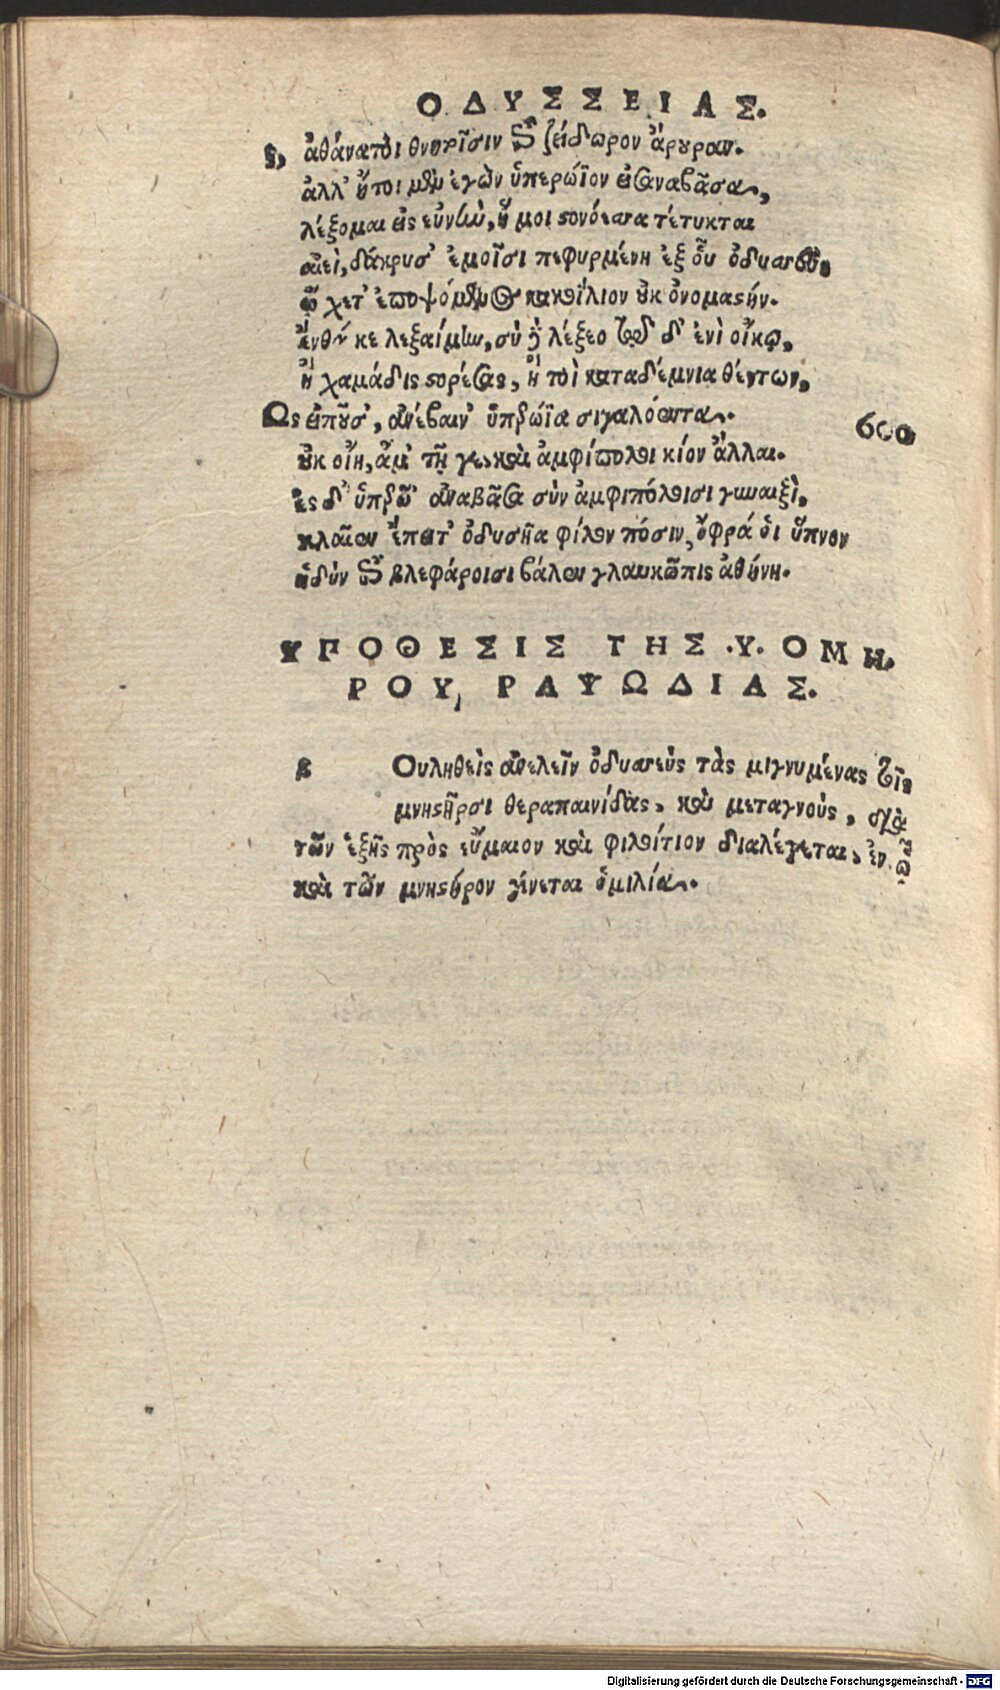 ΟΔΥΣΣΕΙΑΣ.
ἀθάνατοι θνητοῖσιν ἐπὶ ζείδωρον ἄρουραν.
ἀλλ' ἤτοι μὲν ἐγὼν ὑπερώϊον εἰσαναβᾶσα,
λέξομαι εἰς εὐνὴν, ἥ μοι στονόεσσα τέτυκται
αἰεὶ, δάκρυσ' ἐμοῖσι πεφυρμένη ἐξ οὗ ὀδυσσεὺς
ᾤχετ' ἐποψόμενος κακοΐλιον οὐκ ὀνομαστήν.
ἔνθά κε λεξαίμην, σὺ δὲ λέξεο τῷδ' ἐνὶ οἴκῳ,
ἢ χαμάδις στορέσας, ἤ τοὶ καταδέμνια θέντων,
Ως εἰποῦσ', ἀνέβαιν' ὑπερώϊα σιγαλόεντα. 600
οὐκ οἴη, ἅμα τῇ γε καὶ ἀμφίπολοι κίον ἄλλαι.
ἐς δ' ὑπερῷ' ἀναβᾶσα σὺν ἀμφιπόλοισι γυναιξὶ,
κλαῖεν ἔπειτ' ὀδυσῆα φίλον πόσιν, ὄφρά ὁι ὕπνον
ἡδὺν ἐπὶ βλεφάροισι βάλεν γλαυκῶπις ἀθήνη.
ΥΠΟΘΕΣΙΣ ΤΗΣ .Υ. ΟΜΗ.
ΡΟΥ, ΡΑΨΩΔΙΑΣ.
β Ουληθεὶς ἀνελεῖν ὀδυσσεὺς τὰς μιγνυμένας τοῖς
μνηστῆρσι θεραπαινίδας, καὶ μεταγνοὺς, διὰ
τῶν ἑξῆς πρὸς εὔμαιον καὶ φιλοίτιον διαλέγεται, ἐν ᾧ
καὶ τῶν μνηστήρον γίνεται ὁμιλία.
Digitalisierung gefördert durch die Deutsche Forschungsgemeinschaft - DFG